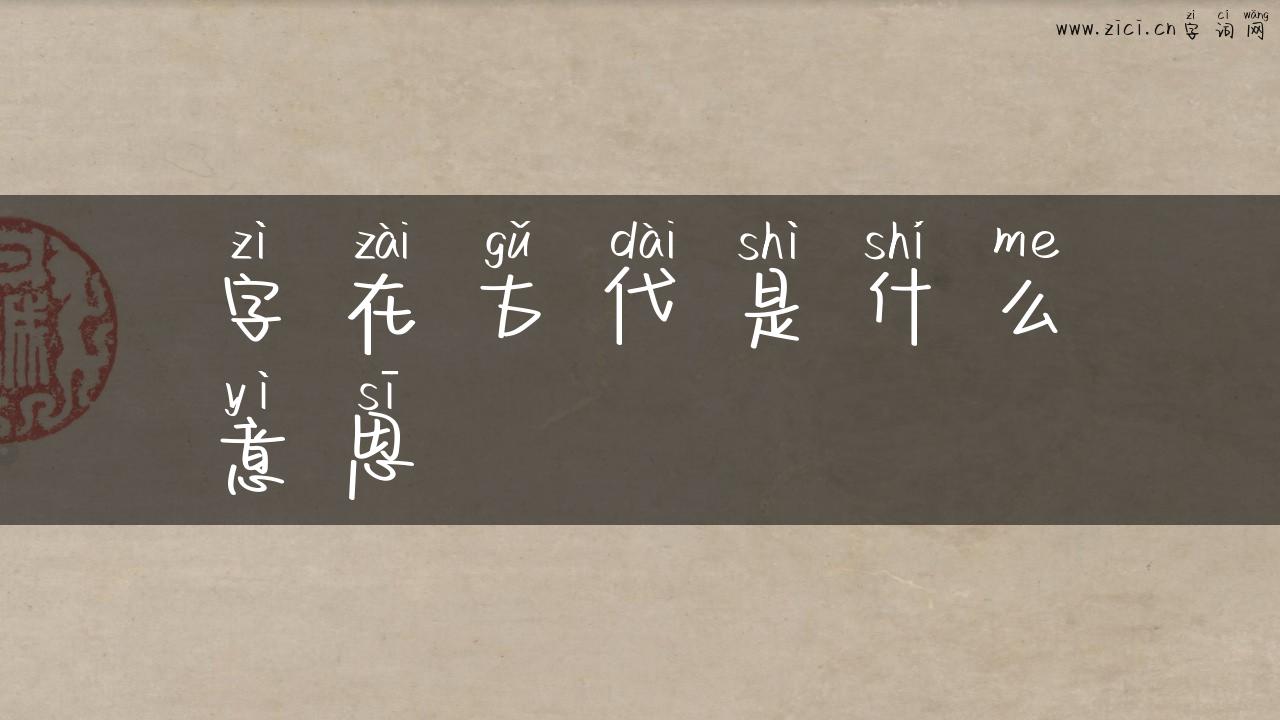 zì cí wǎng
www.zici.cn 字词网
zì zài gǔ dài shì shí me
字在古代是什么
yì sī
意思